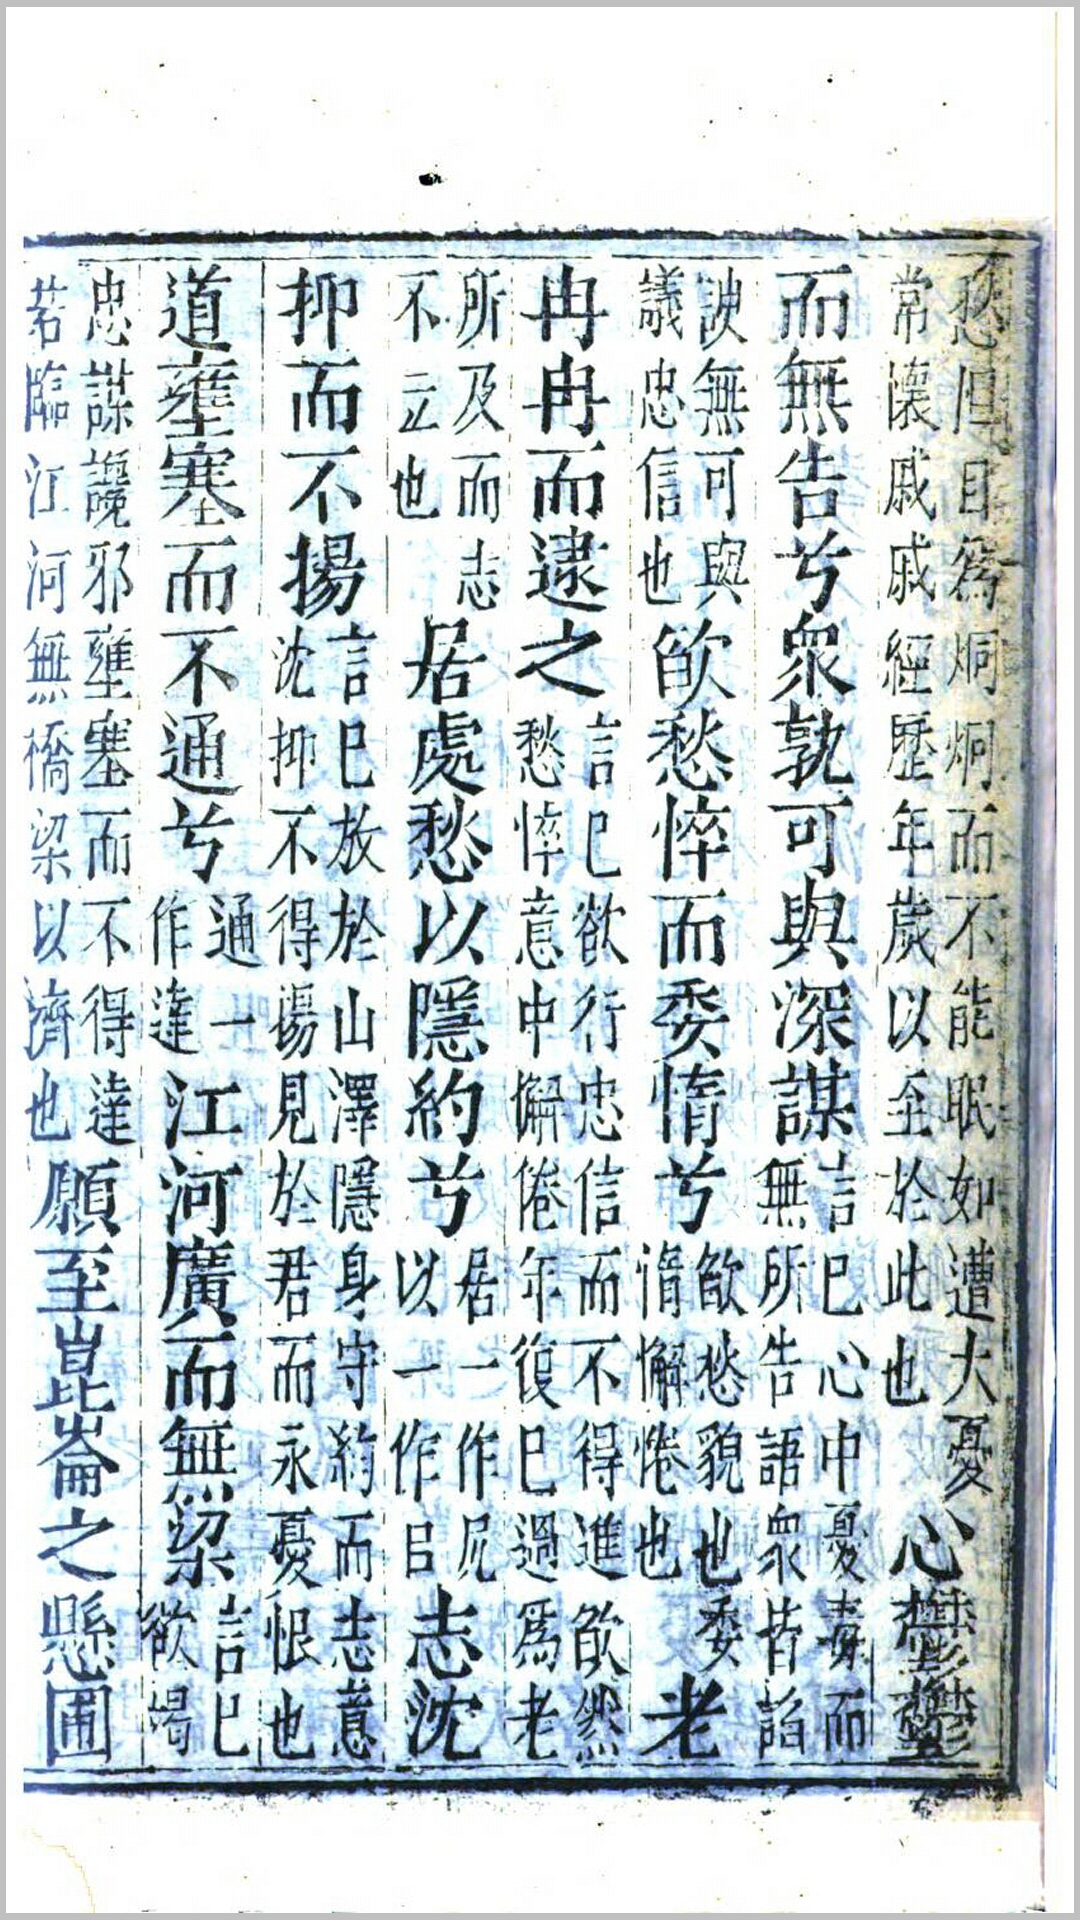 愁怛目為炯炯而不能眠如遭大憂
常懷戚戚經歷年歲以至於此也
心鬱鬱
而無告兮眾孰可與深謀
言已心中憂毒而
無所告語眾皆諂
諛無可與
議忠信也
欿愁悴而委惰兮
欿愁貌也委
惰懈倦也
老
冉冉而逮之
言已欲行忠信而不得進欿然
愁悴意中懈倦年復已過為老
所及而志
不立也
居處愁以隱約兮
居一作凥
以一作㠯
志沈
抑而不揚
言已放於山澤隱身守約而志意
沈抑不得揚見於君而永憂恨也
道壅塞而不通兮
通一
作達
江河廣而無梁
言已
欲竭
忠謀讒邪壅塞而不得達
若臨江河無橋梁以濟也
願至崑崙之懸圃